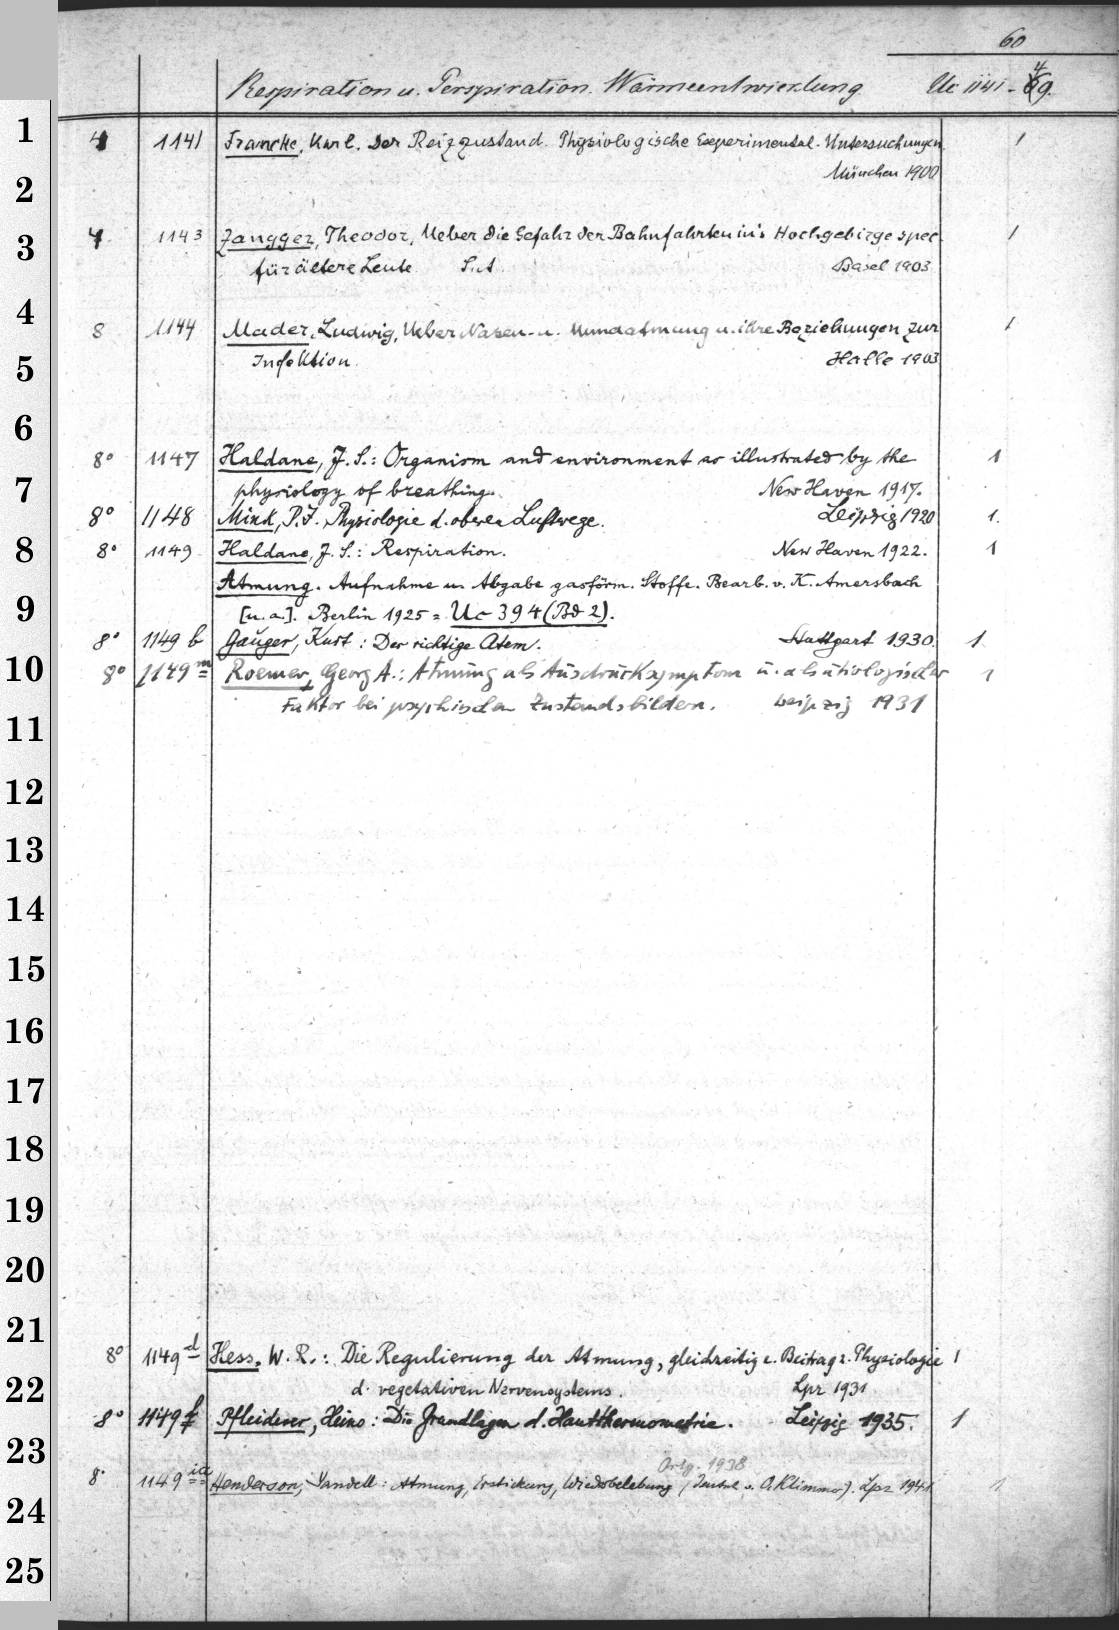 60
Respiration u. Perspiration. Wärmeentwicklung Uc 1141 - 49.
1
4 1141 Francke, Karl. Der Reizzustand. Physiologische Experimental-Untersuchungen. 1
2
München 1900
4 1143 Zangger, Theodor, Ueber die Gefahr der Bahnfahrten in's Hochgebirge spec. 1
3
für ältere Leute S.A. Basel 1903
4
8 1144 Mader, Ludwig, Ueber Nasen- u. Mundatmung u. ihre Beziehungen zur 1
5
Infektion. Halle 1903
6
8° 1147 Haldane, J. S.: Organism and environment as illustrated by the 1
7
physiology of breathing. New Haven 1917.
8° 1148 Mink, P.J. Physiologie d. oberen Luftwege. Leipzig 1920 1.
8
8° 1149 Haldane, J. S.: Respiration. New Haven 1922. 1
Atmung. Aufnahme u. Abgabe gasförm. Stoffe. Bearb. v. K. Amersbach
9
[u.a.]. Berlin 1925 = Uc 394 (Bd 2).
8° 1149 b Gauger, Kurt: Der richtige Atem. Stuttgart 1930. 1
10
8° 1149 m Roemer, Georg A.: Atmung als Ausdruckssymptom u. als ätiologischer 1
Faktor bei psychischen Zustandsbildern. Leipzig 1931
11
12
13
14
15
16
17
18
19
20
21
8° 1149 d Hess, W. R.: Die Regulierung der Atmung, gleichzeitig e. Beitrag z. Physiologie 1
22
d. vegetativen Nervensystems. Lpz 1931
8° 1149 f Pfleiderer, Heino: Die Grundlagen d. Hautthermometrie. Leipzig 1935. 1
23
Orig. 1938
8° 1149 ia Henderson, Yandell: Atmung, Erstickung, Wiederbelebung (Deutsch v. O. Klimmer). Lpz 1941. 1
24
25